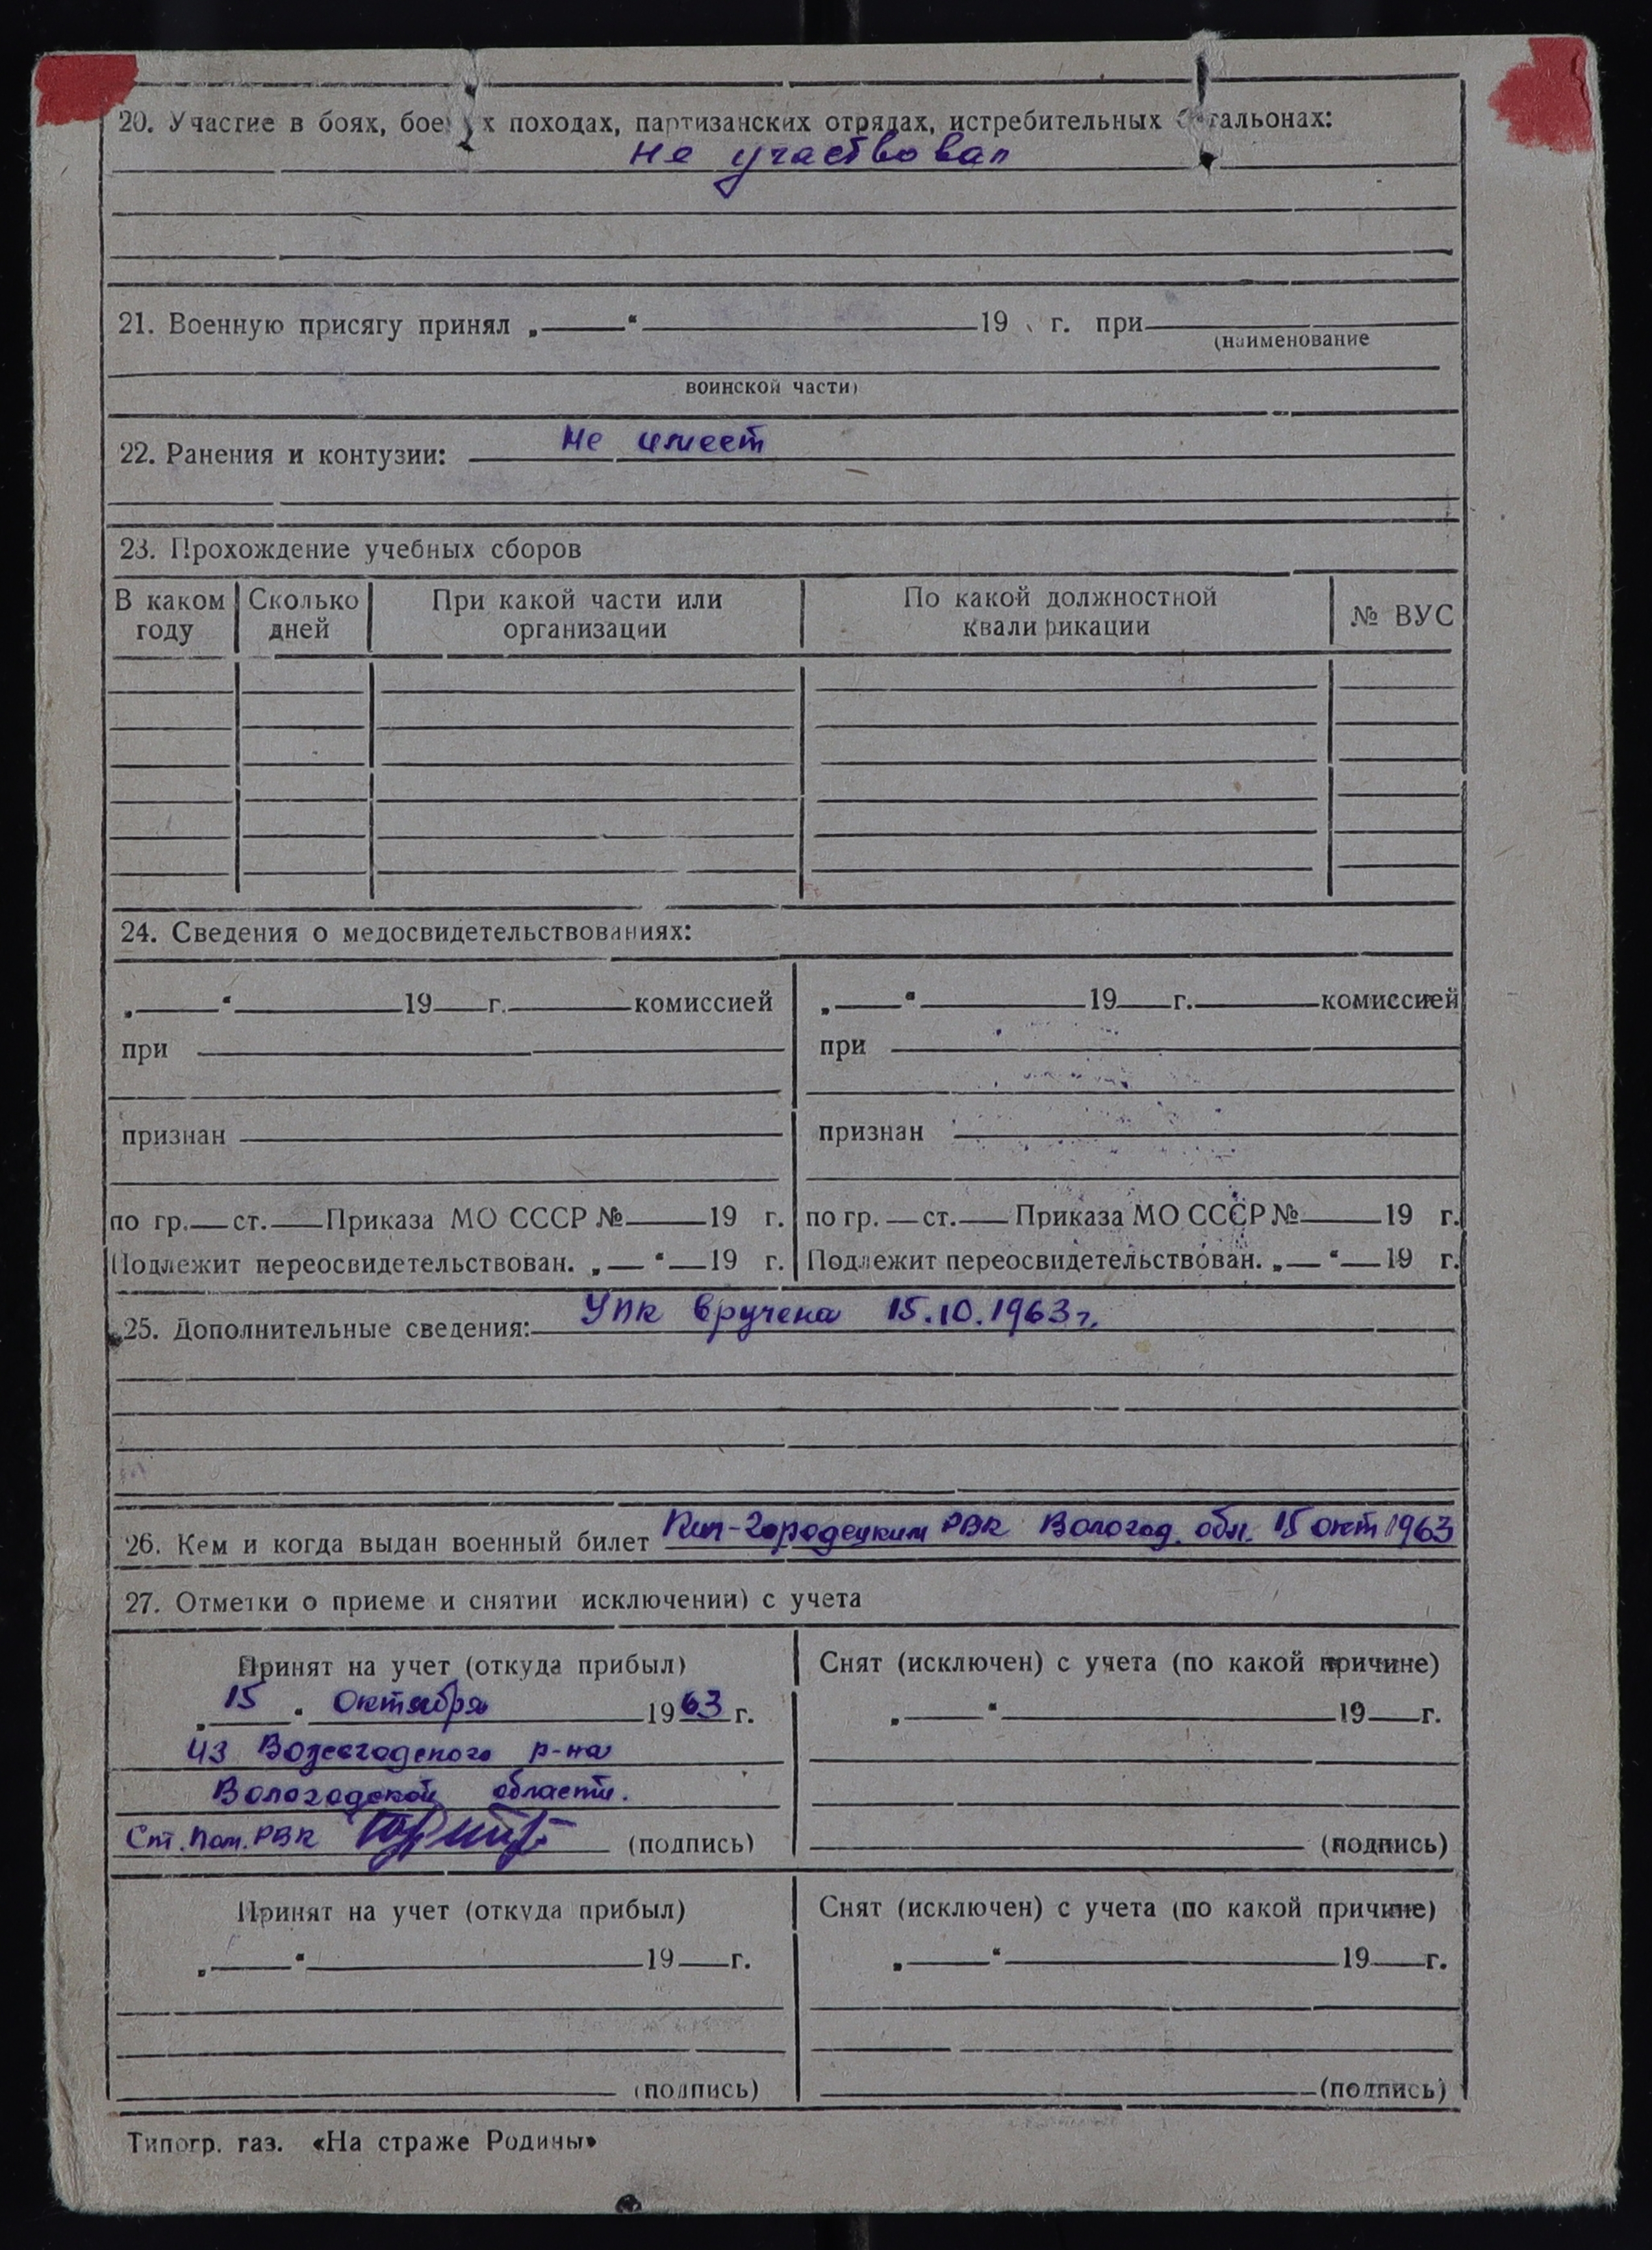 20. Участие в боях, боевых походах, партизанских отрядах, истребительных батальонах:
не участвовал
21. Военную присягу принял „ “ 19 г. при
(наименование
воинской части)
22. Ранения и контузии: не имеет
23. Прохождение учебных сборов
В каком году Сколько дней При какой части или организации По какой должностной квалификации № ВУС
24. Сведения о медосвидетельствованиях:
„ “ 19 г. комиссией
при
признан
по гр. ст. Приказа МО СССР № 19 г.
Подлежит переосвидетельствован. „ “ 19 г.
„ “ 19 г. комиссией
при
признан
по гр. ст. Приказа МО СССР № 19 г.
Подлежит переосвидетельствован. „ “ 19 г.
25. Дополнительные сведения: УПК вручена 15.10.1963 г.
26. Кем и когда выдан военный билет Кич-Городецким РВК Вологод. обл. 15 окт 1963
27. Отметки о приеме и снятии исключении) с учета
Принят на учет (откуда прибыл)
„ 15 “ Октября 1963 г.
из Вожегодского р-на
Вологодской области.
Ст. Пом. РВК (подпись)
Снят (исключен) с учета (по какой причине)
„ “ 19 г.
(подпись)
Принят на учет (откуда прибыл)
„ “ 19 г.
(подпись)
Снят (исключен) с учета (по какой причине)
„ “ 19 г.
(подпись)
Типогр. газ. «На страже Родины»